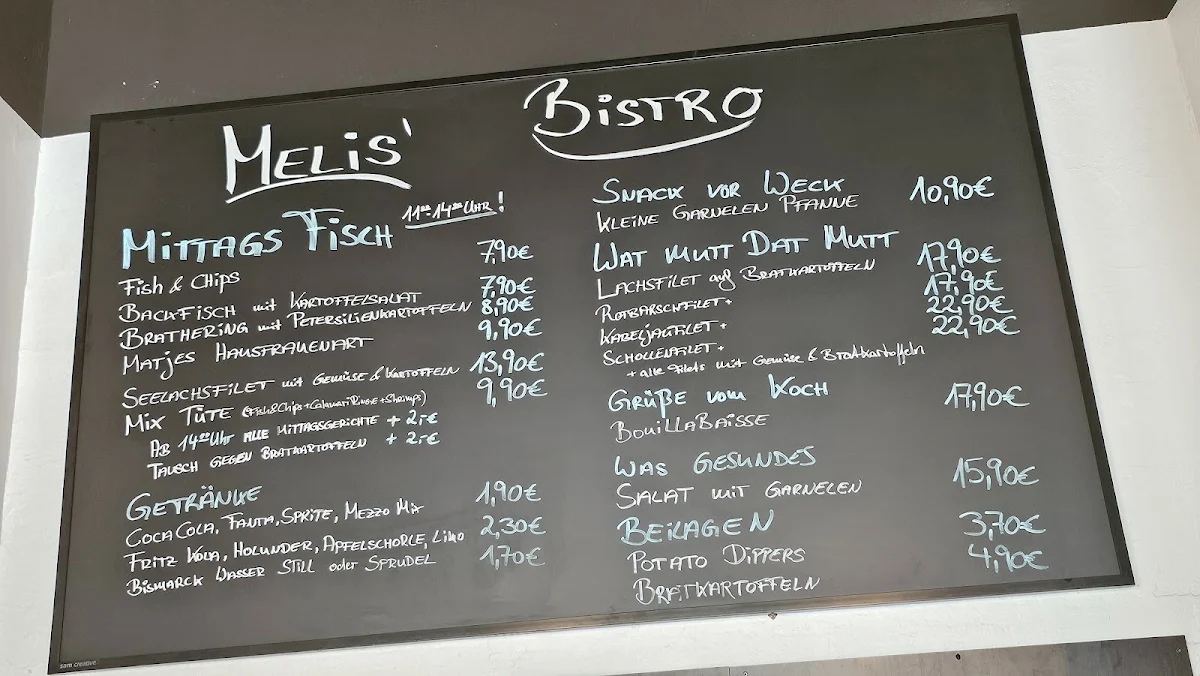 MELIS' BISTRO
MITTAGS FISCH 11⁰⁰-14⁰⁰ UHR!
Fish & Chips 7,90€
BACKFISCH mit KARTOFFELSALAT 7,90€
BRATHERING mit PETERSILIENKARTOFFELN 8,90€
MATJES HAUSFRAUENART 9,90€
SEELACHSFILET mit GEMÜSE & KARTOFFELN 13,90€
MIX TÜTE (Fish&Chips+Calamari Ringe+Shrimps) 9,90€
AB 14⁰⁰ Uhr ALLE MITTAGSGERICHTE + 2,-€
TAUSCH GEGEN BRATKARTOFFELN + 2,-€
GETRÄNKE
COCA COLA, FANTA, SPRITE, MEZZO MIX 1,90€
FRITZ KOLA, HOLUNDER, APFELSCHORLE, LIMO 2,30€
BISMARCK WASSER STILL oder SPRUDEL 1,70€
SNACK VOR WECK
KLEINE GARNELEN PFANNE 10,90€
WAT MUTT DAT MUTT
LACHSFILET auf BRATKARTOFFELN 17,90€
ROTBARSCHFILET+ 17,90€
KABELJAUFILET+ 22,90€
SCHOLLENFILET+ 22,90€
+ alle Filets mit Gemüse & Bratkartoffeln
GRÜßE vom KOCH
BOUILLABAISSE 17,90€
WAS GESUNDES
SALAT MIT GARNELEN 15,90€
BEILAGEN
POTATO DIPPERS 3,70€
BRATKARTOFFELN 4,90€
sam creative